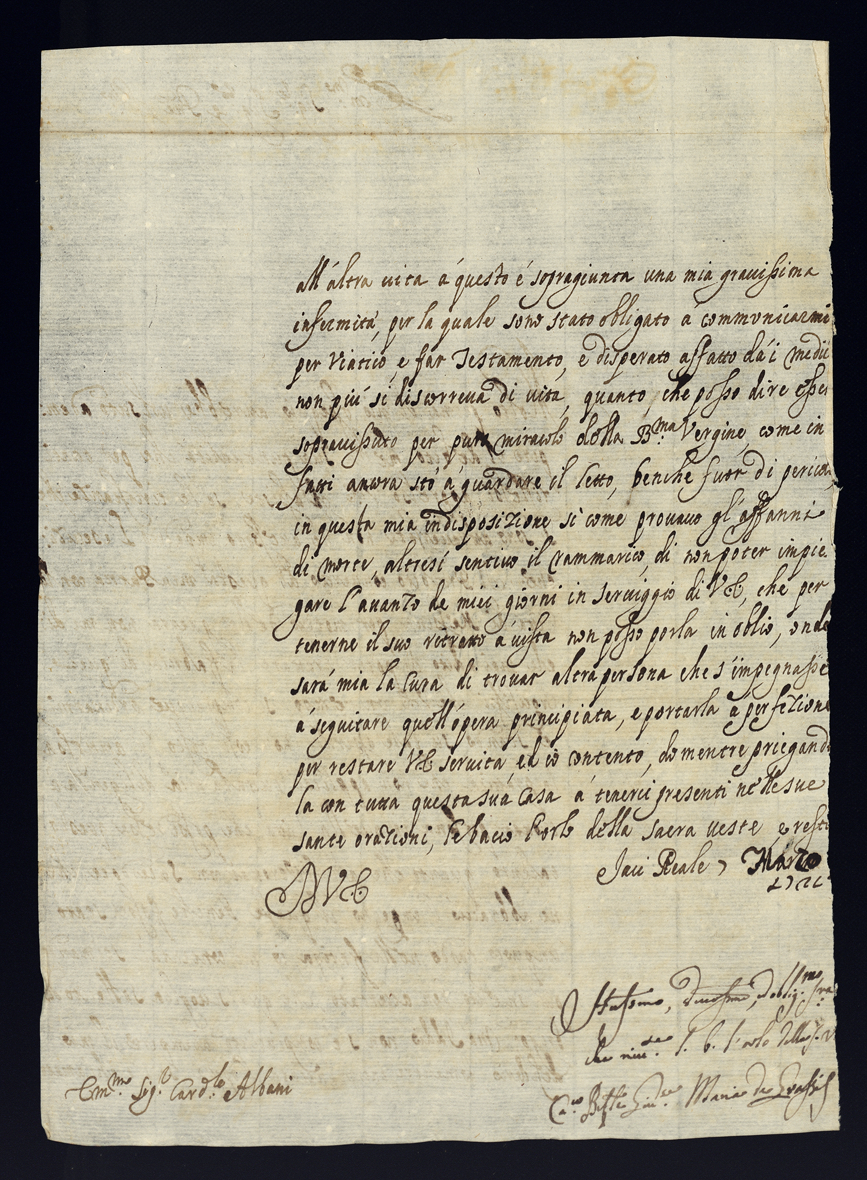 All'altra vita a questo è sopragiunta una mia gravissima
infermità, per la quale sono stato obligato a communicarmi
per Viatico e far Testamento, e disperato affatto dà i medici
non più si discorreva di vità, quanto, che posso dire esser
sopravissuto per puro miracolo della B.ma Vergine, come in
fatti ancora stò à guardare il letto, benche fuor di perico
in questa mia indisposizione si come provavo gl'affanni
di morte, altresì sentivo il rammarico, di non poter impie
gare l'avanzo de miei giorni in serviggio di VE, che per
tenerne il suo ritratto à vista non posso porla in oblio, onde
sarà mia la cura di trovar altra persona che s'impegnasse
à seguitare quell'opera principiata, e portarla à perfezione
per restare VE servita ed io contento, do mentre priegando
la con tutta questa sua Casa à tenerci presenti nelle sue
sante orazioni, le bacio l'orlo della sacra veste e resto
Jaci Reale, Marzo
AVE
Umilissimo, devotissimo, ed oblig.mo
che l. b. l'orlo della
Maria de Grassis
Em.mo Sig.r Card.le Albani